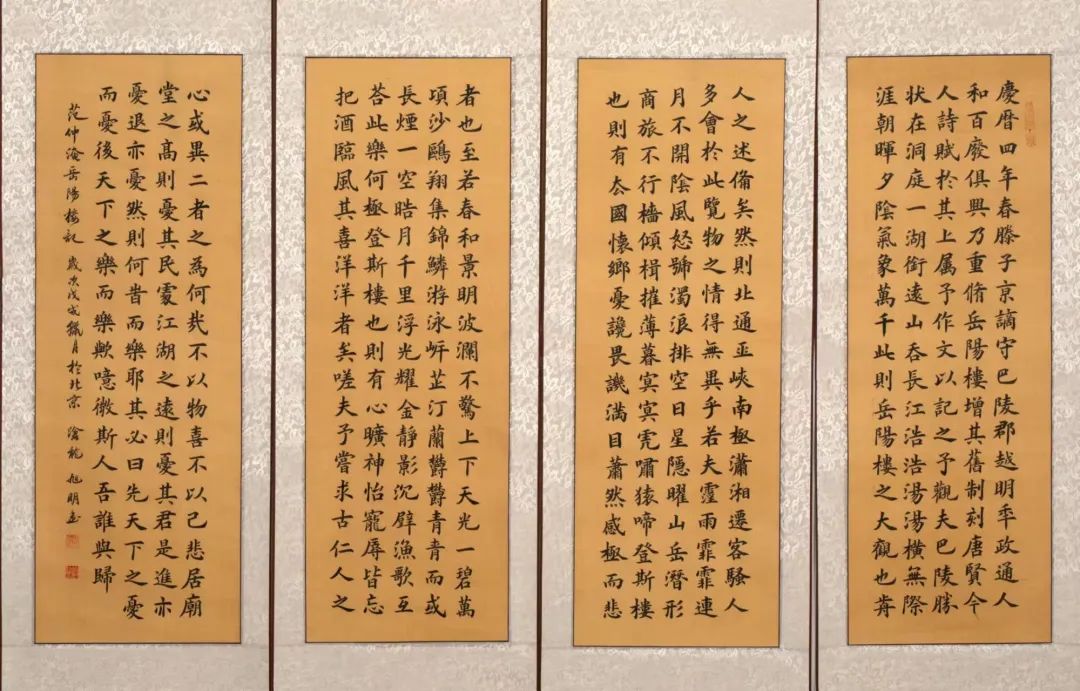 慶曆四年春滕子京謫守巴陵郡越明秊政通人
和百廢俱興乃重脩岳陽樓增其舊制刻唐賢今
人詩賦於其上属予作文以記之予觀夫巴陵勝
状在洞庭一湖銜遠山吞長江浩浩湯湯橫無際
涯朝暉夕陰氣象萬千此則岳陽樓之大觀也前
人之述備矣然則北通巫峽南極瀟湘遷客騷人
多會於此覽物之情得無異乎若夫霪雨霏霏連
月不開陰風怒號濁浪排空日星隱曜山岳潛形
商旅不行檣傾楫摧薄暮冥冥虎嘯猿啼登斯樓
也則有去國懷鄉憂讒畏譏滿目蕭然感極而悲
者也至若春和景明波瀾不驚上下天光一碧萬
頃沙鷗翔集錦鱗游泳岸芷汀蘭鬱鬱青青而或
長煙一空皓月千里浮光耀金静影沉璧漁歌互
荅此樂何極登斯樓也則有心曠神怡寵辱皆忘
把酒臨風其喜洋洋者矣嗟夫予嘗求古仁人之
心或異二者之為何哉不以物喜不以己悲居廟
堂之高則憂其民處江湖之遠則憂其君是進亦
憂退亦憂然則何時而樂耶其必曰先天下之憂
而憂後天下之樂而樂歟噫微斯人吾誰與歸
范仲淹岳陽樓記 歲次戊戌臘月於北京 旭明書